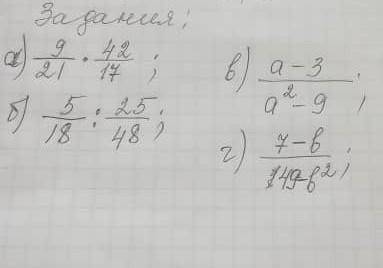 Задания:
а) 9/21 · 42/17 ;
б) 5/18 : 25/48 ;
в) a - 3 / a² - 9 ;
г) 7 - b / 49 - b² ;